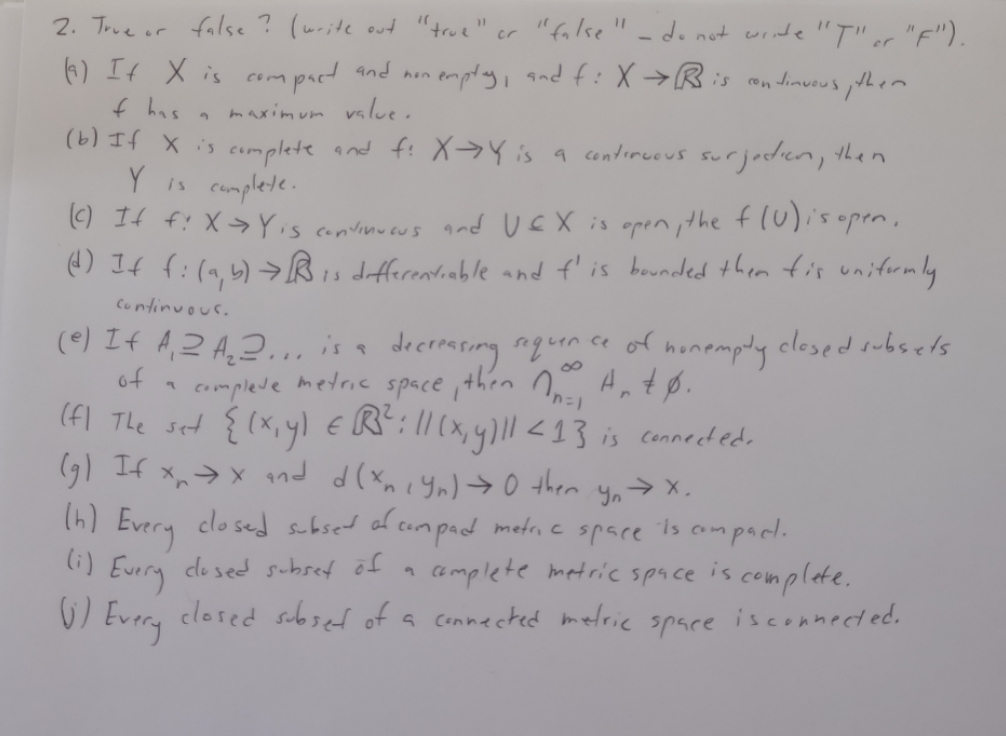 2. True or false? (write out "true" or "false" - do not write "T" or "F").
(a) If X is compact and nonempty, and f: X → ℝ is continuous, then
f has a maximum value.
(b) If X is complete and f: X → Y is a continuous surjection, then
Y is complete.
(c) If f: X → Y is continuous and U ⊆ X is open, the f(U) is open.
(d) If f: (a,b) → ℝ is differentiable and f' is bounded then f is uniformly
continuous.
(e) If A₁ ⊇ A₂ ⊇ ... is a decreasing sequence of nonempty closed subsets
of a complete metric space, then ⋂ₙ₌₁^∞ Aₙ ≠ ∅.
(f) The set {(x,y) ∈ ℝ²: ||(x,y)|| < 1} is connected.
(g) If xₙ → x and d(xₙ, yₙ) → 0 then yₙ → x.
(h) Every closed subset of compact metric space is compact.
(i) Every closed subset of a complete metric space is complete.
(j) Every closed subset of a connected metric space is connected.